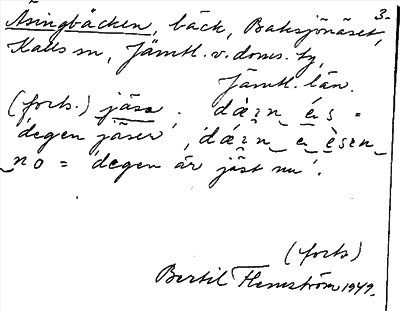 3.
Åsingbäcken, bäck, Baksjönäset,
Kalls sn, Jämtl. v. doms. tg,
Jämtl. län.
(forts.) jäsa. dàɪn és =
'degen jäser', dáɪn e èsɪn
no = 'degen är jäst nu'.
(forts)
Bertil Flemström 1949.